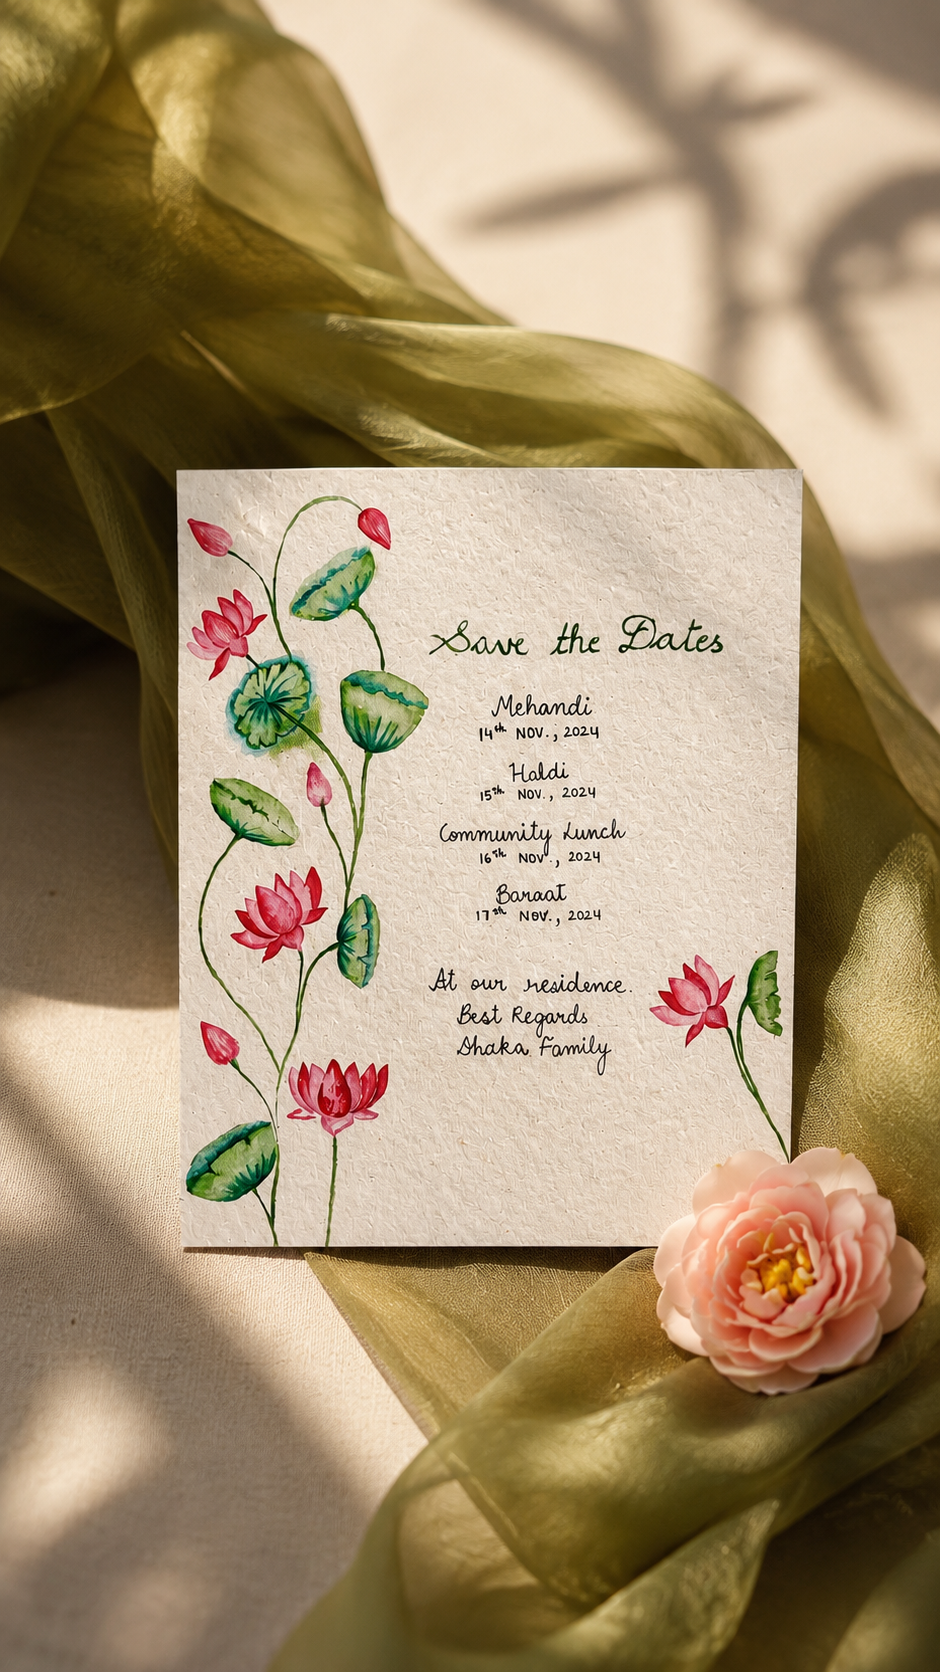 Save the Dates
Mehandi
14th NOV., 2024
Haldi
15th NOV., 2024
Community Lunch
16th NOV., 2024
Baraat
17th NOV., 2024
At our residence.
Best Regards
Dhaka Family